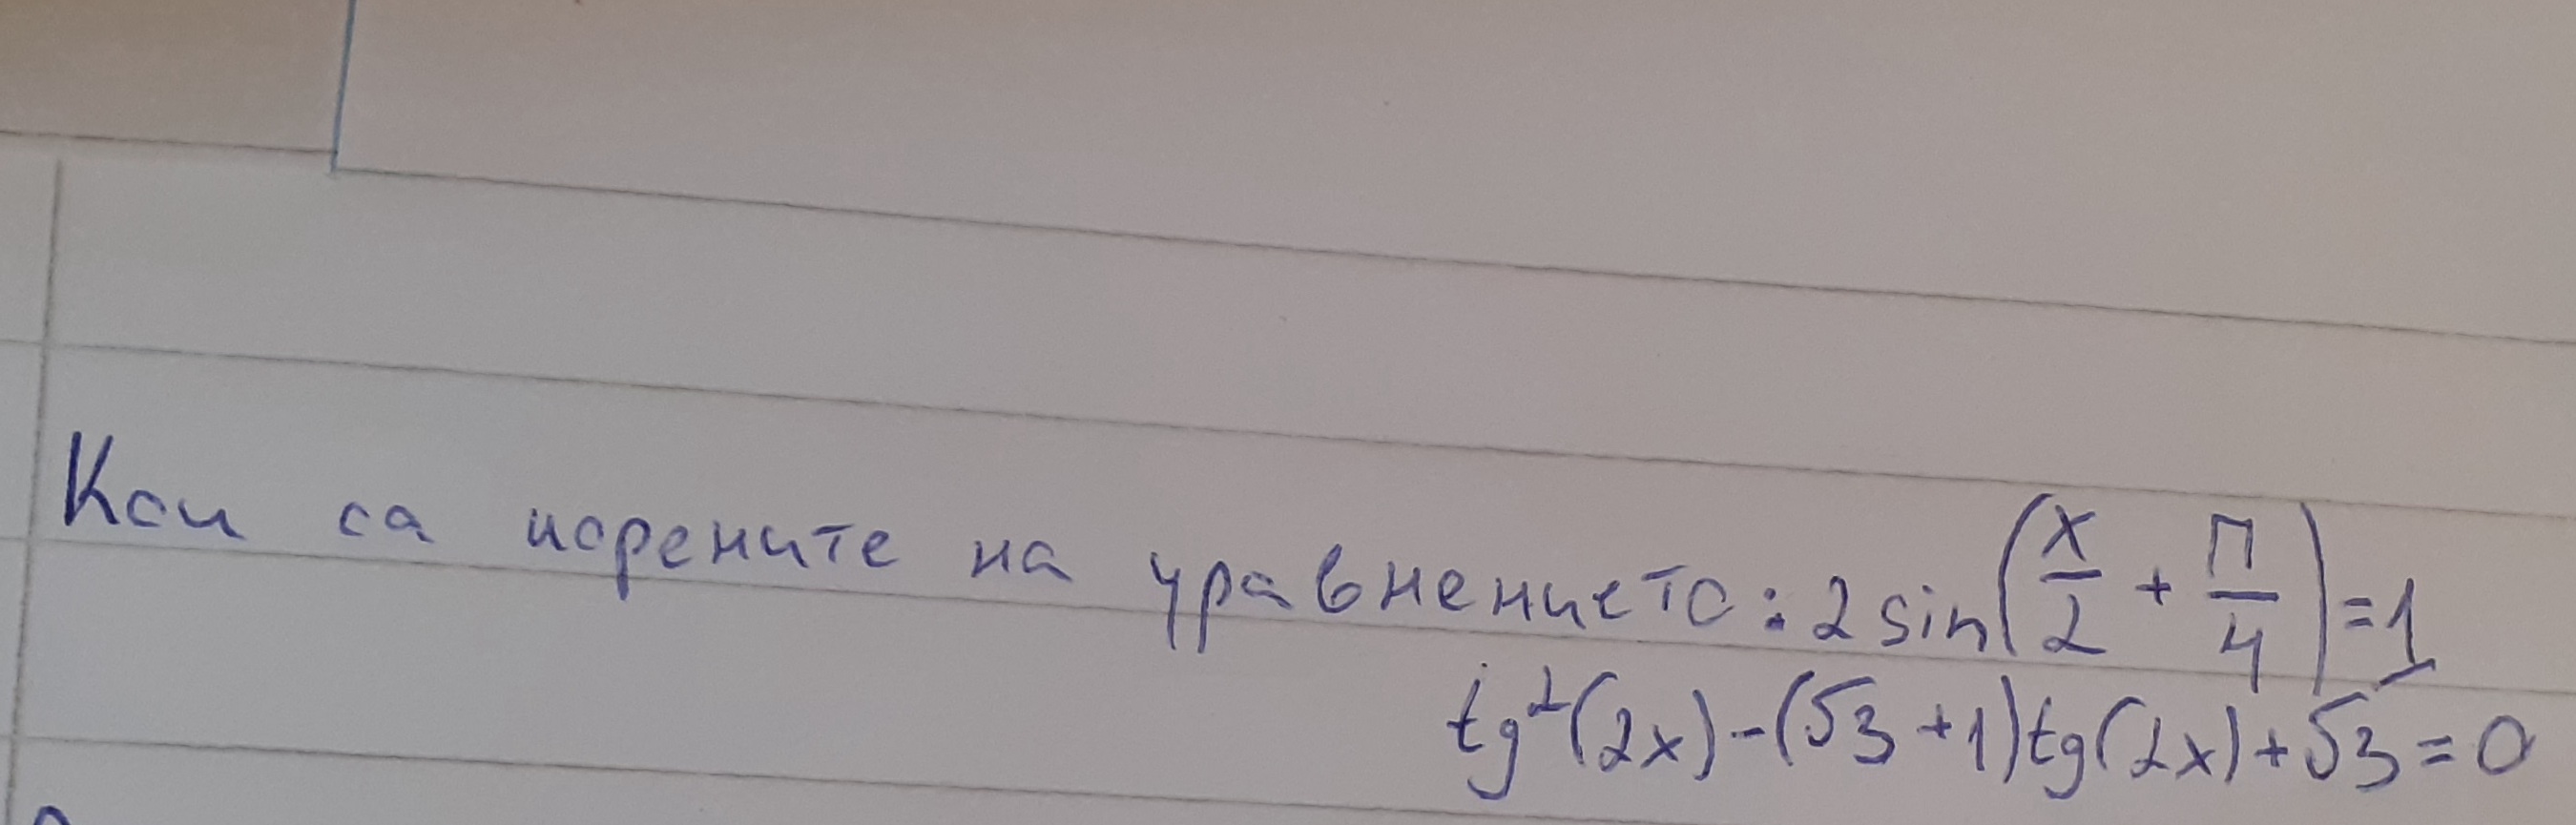 Кои са корените на уравнението: 2 sin(x/2 + π/4) = 1
tg²(2x) - (√3 + 1)tg(2x) + √3 = 0